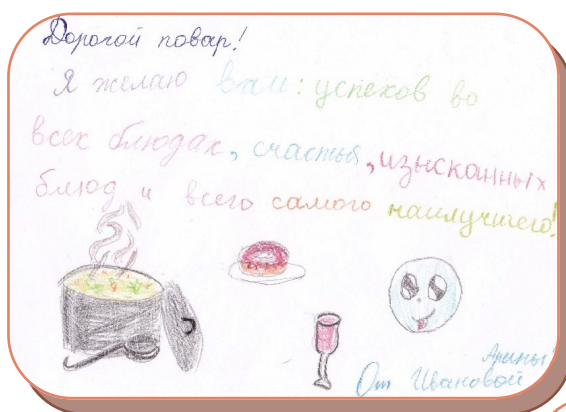 Дорогой повар!
Я желаю вам: успехов во
всех блюдах, счастья, изысканных
блюд и всего самого наилучшего!
Арины
От Ивановой